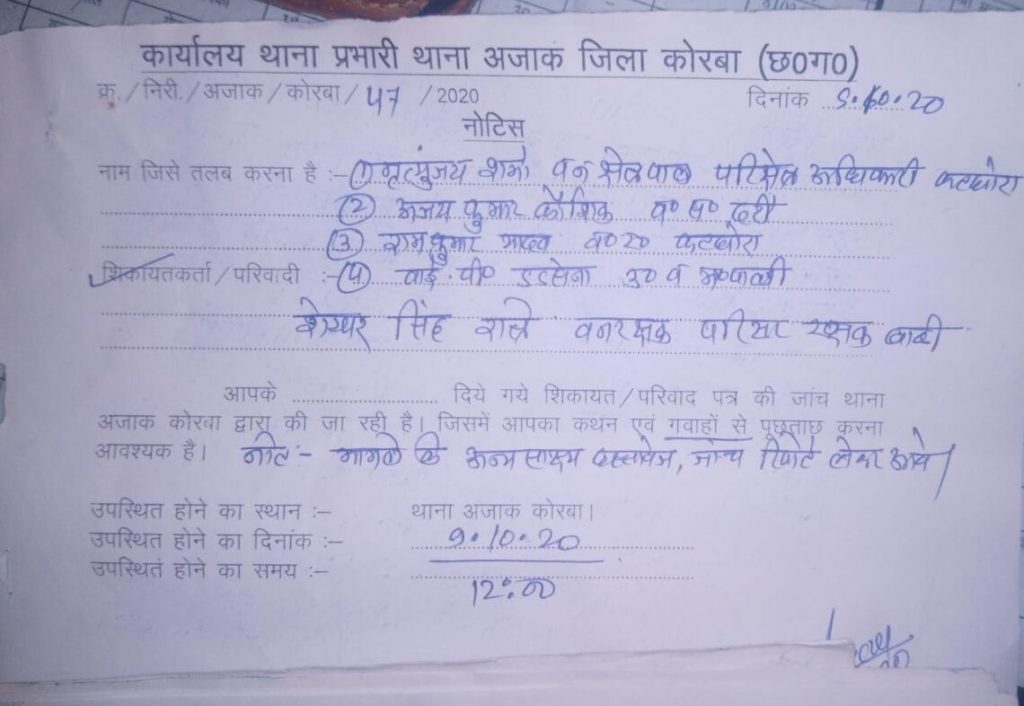 कार्यालय थाना प्रभारी थाना अजाक जिला कोरबा (छ0ग0)
क्र./निरी./अजाक/कोरबा/47 /2020 दिनांक 10.20
नोटिस
नाम जिसे तलब करना है :– (1) मृत्युंजय शर्मा वन क्षेत्रपाल परिक्षेत्र अधिकारी कटघोरा
(2) अजय कुमार कौशिक
(3) राम कुमार यादव कटघोरा
शिकायतकर्ता/परिवादी :– (4) वाई. पी0 डडसेना
शेखर सिंह रात्रे वनरक्षक परिसर रक्षक
आपके .......................... दिये गये शिकायत/परिवाद पत्र की जांच थाना
अजाक कोरबा द्वारा की जा रही है। जिसमें आपका कथन एवं गवाहों से पूछताछ करना
आवश्यक है। नोट:- मामले कि अन्य साक्ष्य दस्तावेज, जांच रिपोर्ट लेकर आवे।
उपस्थित होने का स्थान :– थाना अजाक कोरबा।
उपस्थित होने का दिनांक :– 9.10.20
उपस्थित होने का समय :–
12:00